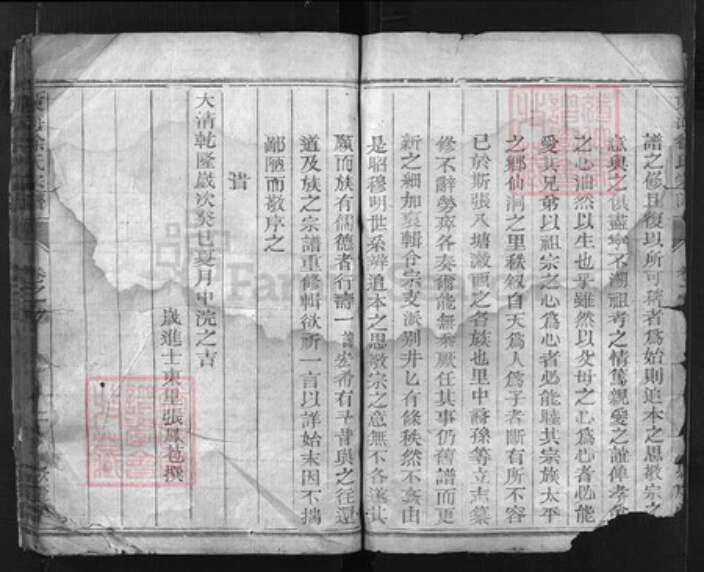 譜之修且復以所可稱者爲始則追本之思敬宗之
意與之俱盡寧不溯祖考之情篤親愛之誼俾孝
之心油然以生也乎雖然以父母之心爲心者必能
愛其兄弟以祖宗之心爲心者必能睦其宗族太平
之鄉仙洞之里秩叙自天爲人爲子者斷有所不容
已於斯張八塘澈頭之各族也里中裔孫等立志纂
修不辭勞瘁各奏爾能無忝厥任其事仍舊譜而更
新之細加裒輯合宗支派別井匕有條秩然不紊由
是昭穆明世系辨追本之思敬宗之意無不各遂其
願而族有儒德者行壽一翁宏希有弓昔與之往還
道及族之宗譜重修輯欲祈一言以詳始末因不揣
鄙陋而敬序之
旹
大清乾隆歲次癸巳夏月中浣之吉
歲進士東里張鳳苞撰